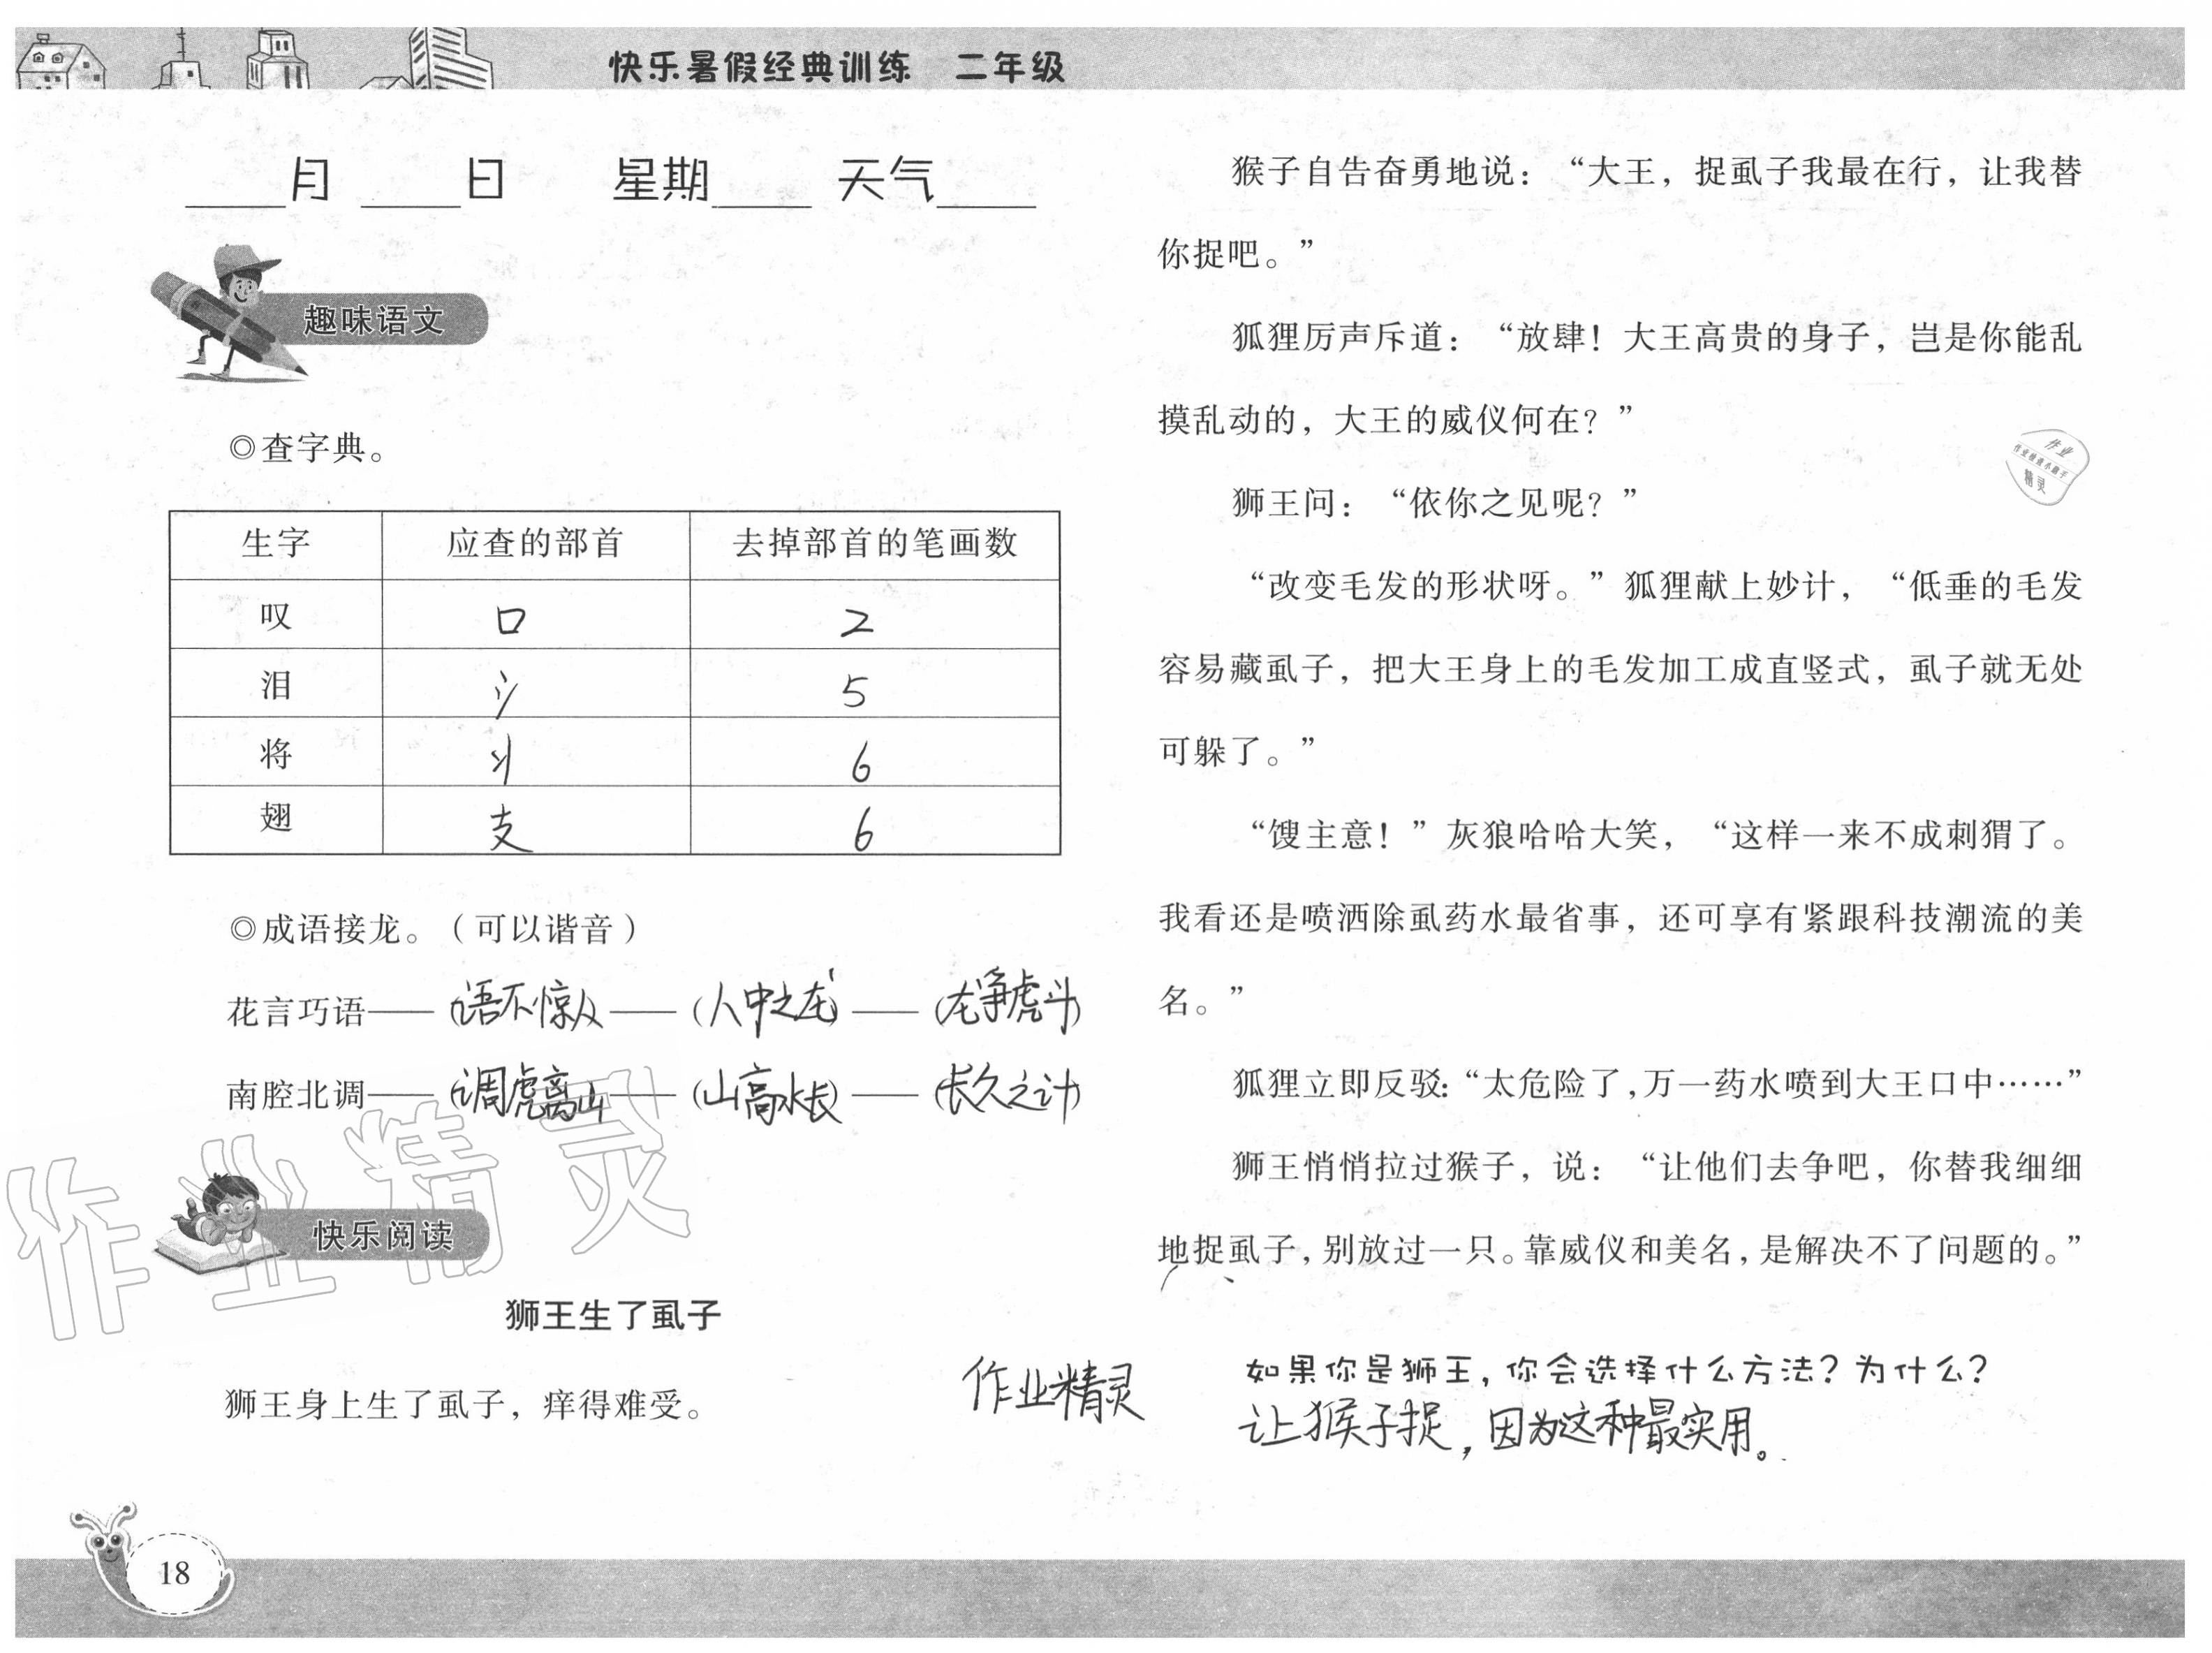 快乐暑假经典训练 二年级
____月 ____日 星期____ 天气____
趣味语文
◎查字典。
生字 应查的部首 去掉部首的笔画数
叹 口 2
泪 氵 5
将 丬 6
翅 支 6
◎成语接龙。（可以谐音）
花言巧语——（语不惊人）——（人中之龙）——（龙争虎斗）
南腔北调——（调虎离山）——（山高水长）——（长久之计）
快乐阅读
狮王生了虱子
狮王身上生了虱子，痒得难受。
作业精灵
18
猴子自告奋勇地说：“大王，捉虱子我最在行，让我替
你捉吧。”
狐狸厉声斥道：“放肆！大王高贵的身子，岂是你能乱
摸乱动的，大王的威仪何在？”
狮王问：“依你之见呢？”
“改变毛发的形状呀。”狐狸献上妙计，“低垂的毛发
容易藏虱子，把大王身上的毛发加工成直竖式，虱子就无处
可躲了。”
“馊主意！”灰狼哈哈大笑，“这样一来不成刺猬了。
我看还是喷洒除虱药水最省事，还可享有紧跟科技潮流的美
名。”
狐狸立即反驳：“太危险了，万一药水喷到大王口中……”
狮王悄悄拉过猴子，说：“让他们去争吧，你替我细细
地捉虱子，别放过一只。靠威仪和美名，是解决不了问题的。”
如果你是狮王，你会选择什么方法？为什么？
让猴子捉，因为这种最实用。
作业精灵
作业
精灵